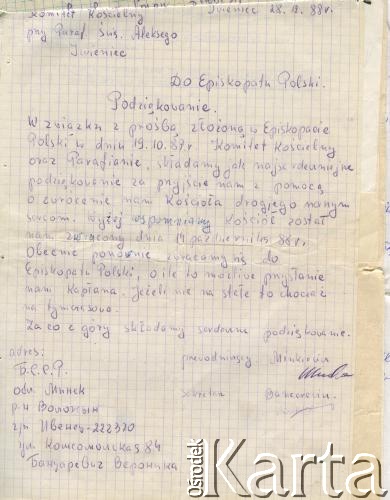 Komitet Kościelny Iwieniec 28.12.88r.
przy Paraf. Św. Aleksego
Iwieniec
Do Episkopatu Polski.
Podziękowanie.
W związku z prośbą złożoną w Episkopacie
Polski w dniu 19.10.87r. Komitet Kościelny
oraz Parafianie, składamy jak najserdeczniejsze
podziękowanie za przyjście nam z pomocą
o zwrócenie nam Kościoła drogiego naszym
sercom. Wyżej wspomniany Kościół został
nam zwrócony dnia 14 października 88r.
Obecnie ponownie zwracamy się do
Episkopatu Polski, o ile to możliwe przysłanie
nam Kapłana. Jeżeli nie na stałe to chociaż
na tymczasowo.
Za co z góry składamy serdeczne podziękowanie.
adres: przewodniczący
Б.С.С.Р.
обл. Минск sekretarz
р-н Воложын
г/п Ивенец-222370
ул. Комсомольская 84
Банцаревич Вероника
Ośrodek
Karta